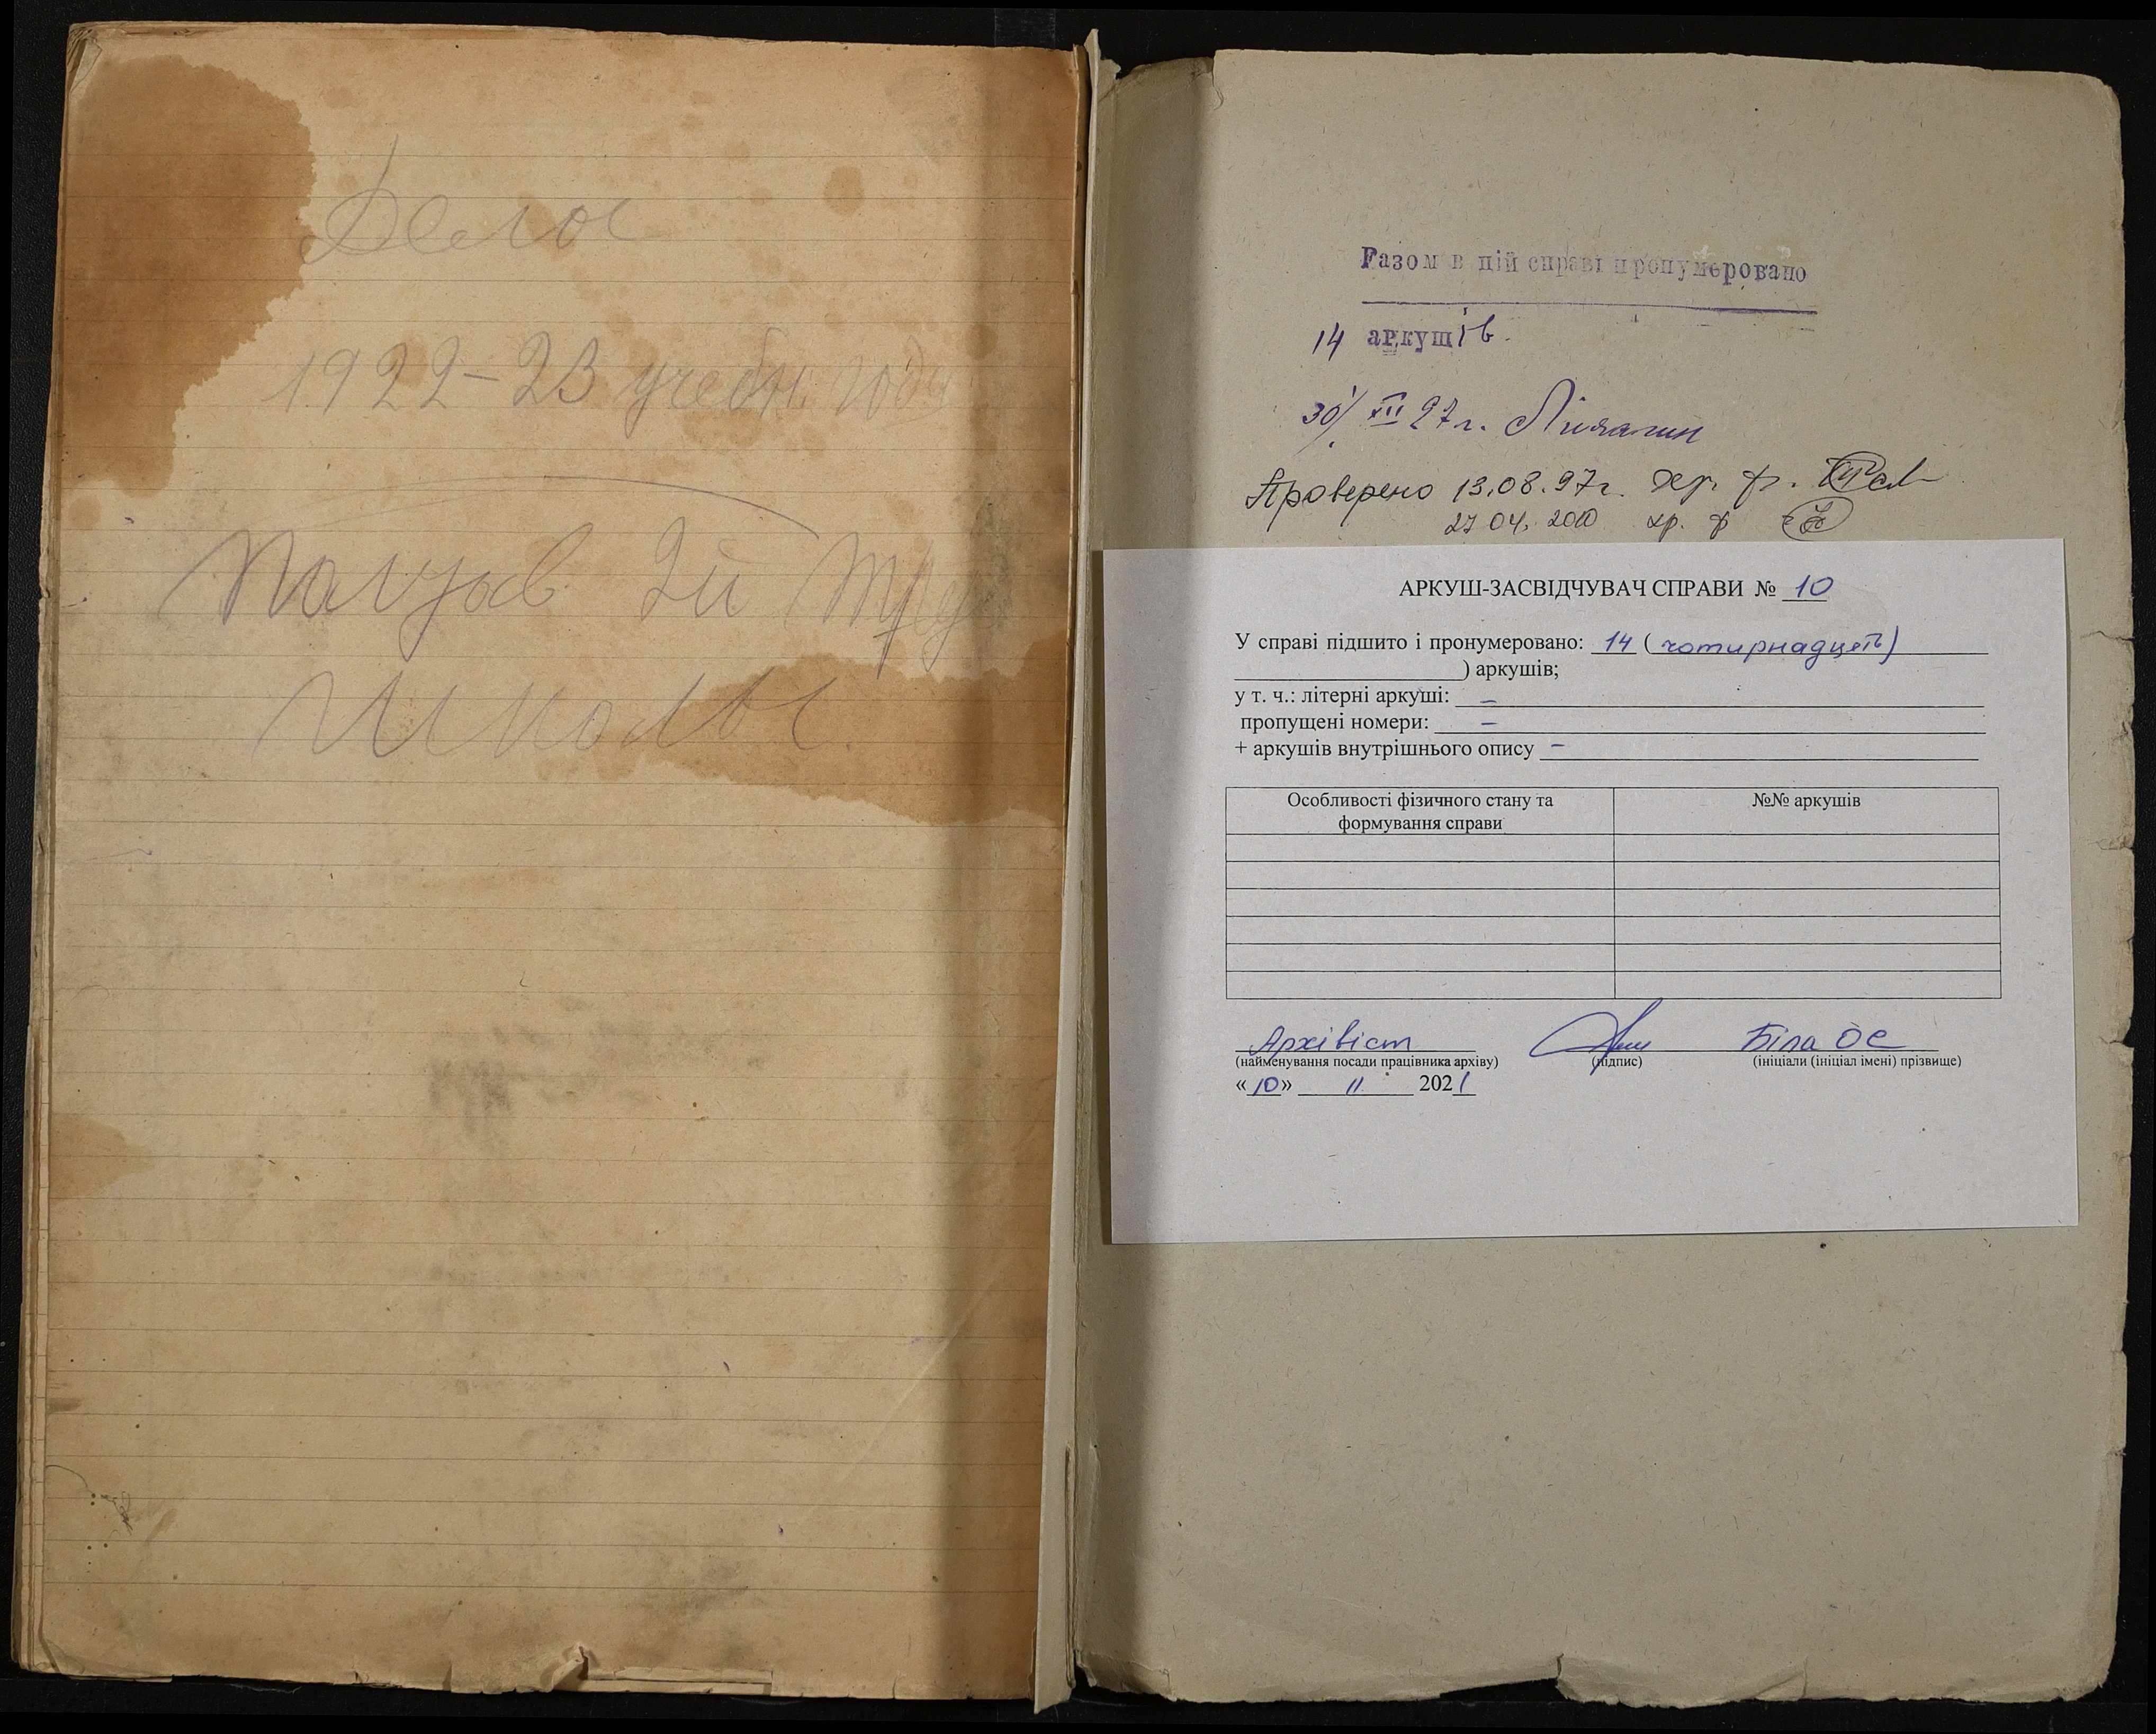 Дела
1922-23 учебн. года
2й Труд
Школы.
Разом в цій справі пронумеровано
14 аркушів.
30/XII 27 г.
Проверено 13.08.97г. хр. ф.
27.04.2010 хр. ф
АРКУШ-ЗАСВІДЧУВАЧ СПРАВИ № 10
У справі підшито і пронумеровано: 14 (чотирнадцять)
) аркушів;
у т. ч.: літерні аркуші: –
пропущені номери: –
+ аркушів внутрішнього опису –
Особливості фізичного стану та формування справи
№№ аркушів
Архівіст Біла ОС
(найменування посади працівника архіву) (підпис) (ініціали (ініціал імені) прізвище)
«10» 11 2021